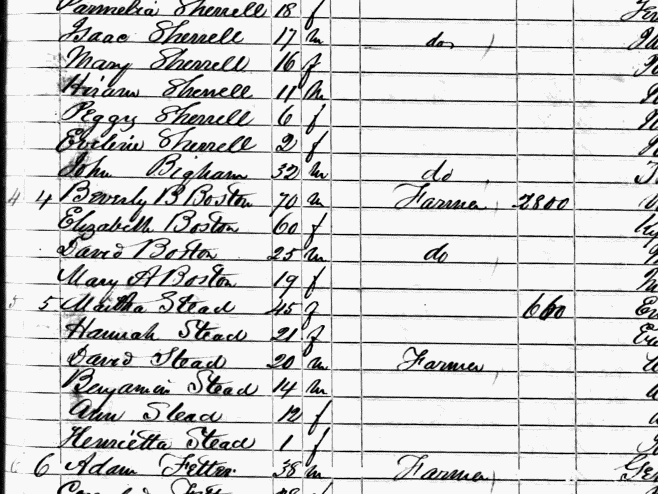 Parmelia Sherrell 18 f
Isaac Sherrell 17 m do
Mary Sherrell 16 f
Hiram Sherrell 11 m
Peggy Sherrell 6 f
Eveline Sherrell 2 f
John Bigham 32 m do
4 4 Beverly B Boston 70 m Farmer 2800
Elizabeth Boston 60 f
David Boston 25 m do
Mary A Boston 19 f
5 5 Martha Stead 45 f 600
Hannah Stead 21 f
David Stead 20 m Farmer
Benjamin Stead 14 m
Ann Stead 12 f
Henrietta Stead 1 f
6 6 Adam Fetter 38 m Farmer Ger